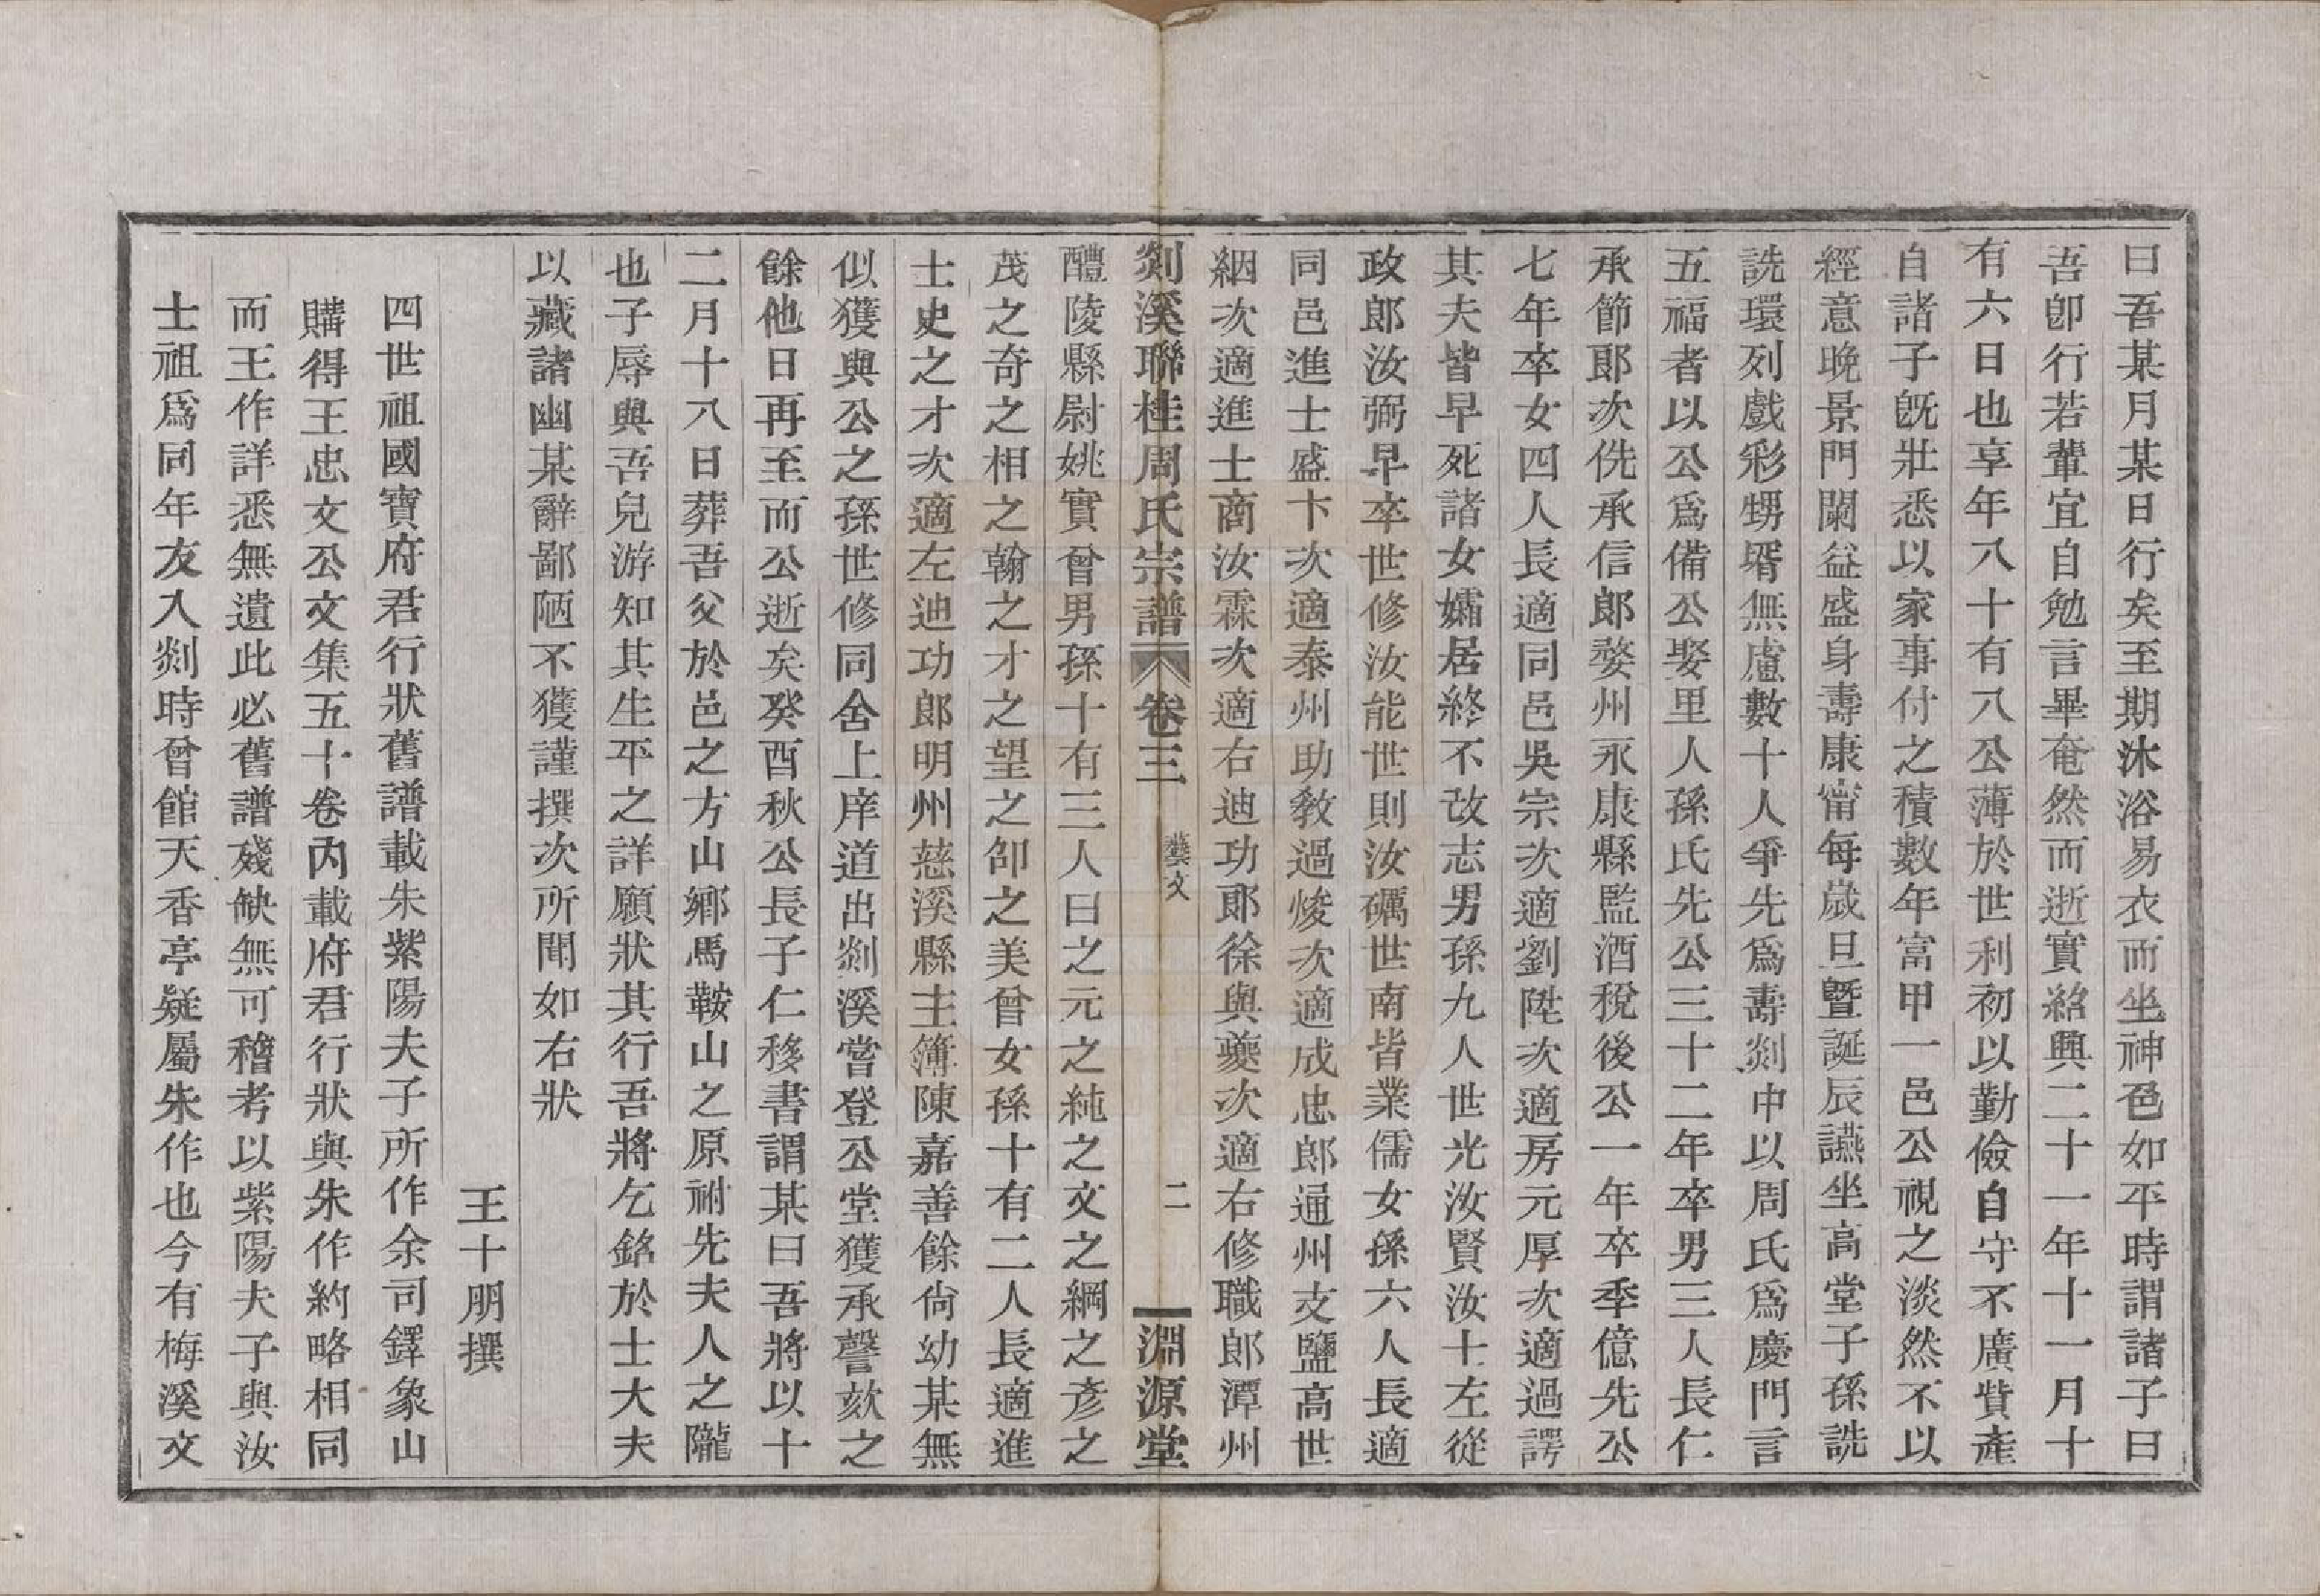 曰吾某月某日行矣至期沐浴易衣而坐神色如平時謂諸子曰
吾卽行若輩宜自勉言畢奄然而逝實紹興二十一年十一月十
有六日也享年八十有八公薄於世利初以勤儉自守不廣貲產
自諸子旣壯悉以家事付之積數年富甲一邑公視之淡然不以
經意晚景門闌益盛身壽康甯每歲旦曁誕辰讌坐高堂子孫詵
詵環列戲彩甥壻無慮數十人爭先爲壽剡中以周氏爲慶門言
五福者以公爲備公娶里人孫氏先公三十二年卒男三人長仁
承節郎次侁承信郎婺州永康縣監酒稅後公一年卒季億先公
七年卒女四人長適同邑吳宗次適劉陞次適房元厚次適過諤
其夫皆早死諸女孀居終不改志男孫九人世光汝賢汝士左從
政郎汝弼早卒世修汝能世則汝礪世南皆業儒女孫六人長適
同邑進士盛卞次適泰州助敎過焌次適成忠郎通州支鹽高世
絪次適進士商汝霖次適右迪功郎徐與夔次適右修職郎潭州
剡溪聯桂周氏宗譜 卷三 藝文 二 淵源堂
醴陵縣尉姚實曾男孫十有三人曰之元之純之文之綱之彥之
茂之奇之相之翰之才之望之卲之美曾女孫十有二人長適進
士史之才次適左迪功郎明州慈溪縣主簿陳嘉善餘尙幼某無
似獲與公之孫世修同舍上庠道出剡溪嘗登公堂獲承謦欬之
餘他日再至而公逝矣癸酉秋公長子仁移書謂某曰吾將以十
二月十八日葬吾父於邑之方山鄉馬鞍山之原祔先夫人之隴
也子辱與吾兒游知其生平之詳願狀其行吾將乞銘於士大夫
以藏諸幽某辭鄙陋不獲謹撰次所聞如右狀
王十朋撰
四世祖國寶府君行狀舊譜載朱紫陽夫子所作余司鐸象山
購得王忠文公文集五十卷內載府君行狀與朱作約略相同
而王作詳悉無遺此必舊譜殘缺無可稽考以紫陽夫子與汝
士祖爲同年友入剡時曾館天香亭疑屬朱作也今有梅溪文